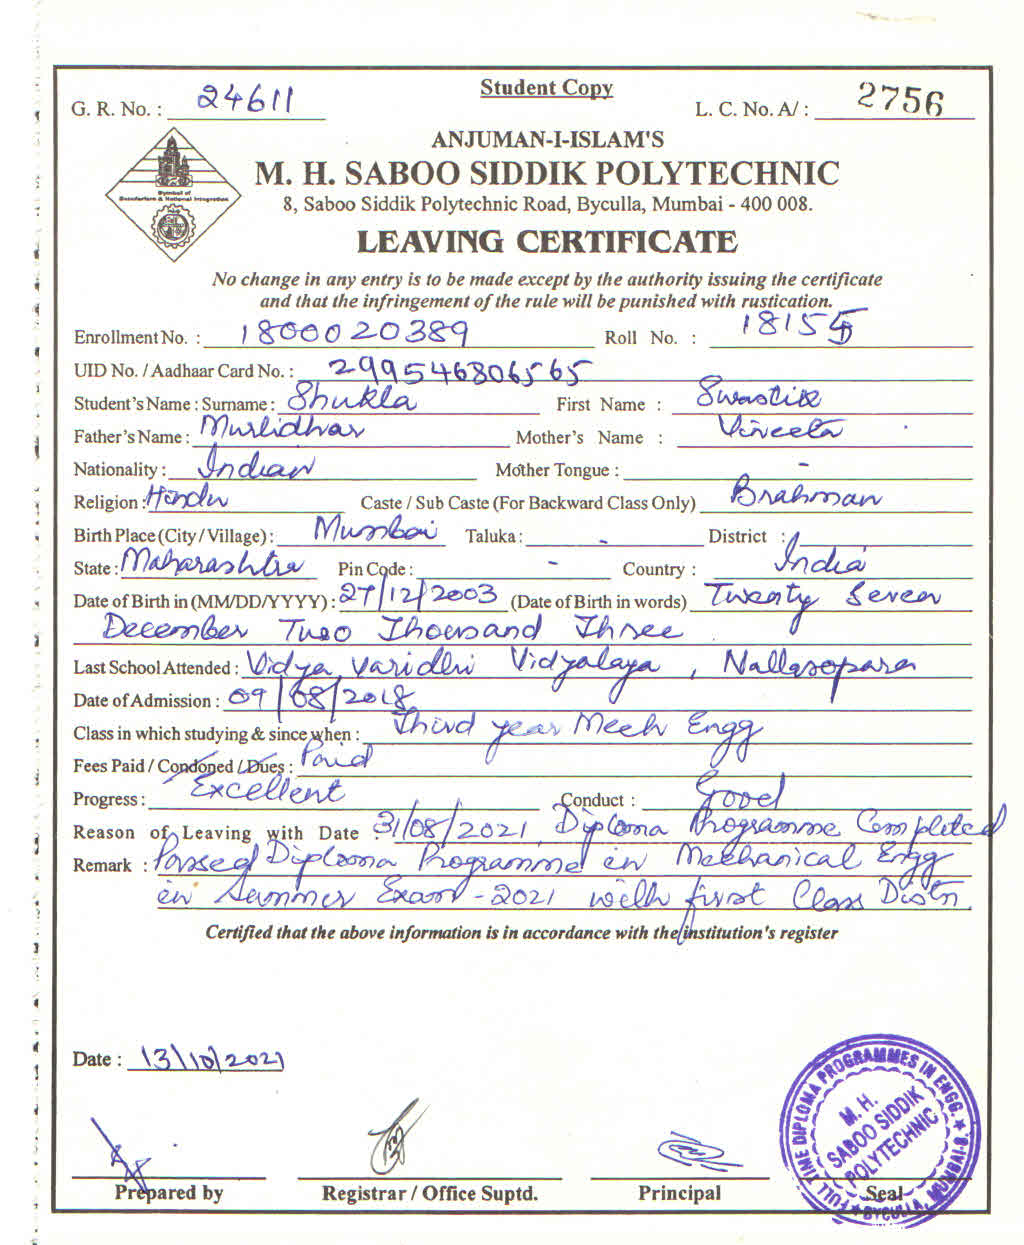 Student Copy
G. R. No. : 24611 L. C. No. A/ : 2756
ANJUMAN-I-ISLAM'S
M. H. SABOO SIDDIK POLYTECHNIC
8, Saboo Siddik Polytechnic Road, Byculla, Mumbai - 400 008.
Symbol of
Secularism & National Integration
LEAVING CERTIFICATE
No change in any entry is to be made except by the authority issuing the certificate
and that the infringement of the rule will be punished with rustication.
Enrollment No. : 1800020389 Roll No. : 18155
UID No. / Aadhaar Card No. : 299546806565
Student's Name : Surname : Shukla First Name : Swastik
Father's Name : Murlidhar Mother's Name : Vineeta
Nationality : Indian Mother Tongue : -
Religion : Hindu Caste / Sub Caste (For Backward Class Only) Brahman
Birth Place (City / Village) : Mumbai Taluka : - District :
State : Maharashtra Pin Code : - Country : India
Date of Birth in (MM/DD/YYYY) : 27/12/2003 (Date of Birth in words) Twenty Seven
December Two Thousand Three
Last School Attended : Vidya Varidhi Vidyalaya , Nallasopara
Date of Admission : 09/08/2018
Class in which studying & since when : Third year Mech Engg
Fees Paid / Condoned / Dues : Paid
Progress : Excellent Conduct : Good
Reason of Leaving with Date : 31/08/2021 Diploma Programme Completed
Remark : Passed Diploma Programme in Mechanical Engg
in Summer Exam - 2021 with first Class Distn
Certified that the above information is in accordance with the institution's register
Date : 13/10/2021
Prepared by Registrar / Office Suptd. Principal Seal
FULL TIME DIPLOMA PROGRAMMES IN ENGG. ★ BYCULLA, MUMBAI-8. ★
M. H.
SABOO SIDDIK
POLYTECHNIC